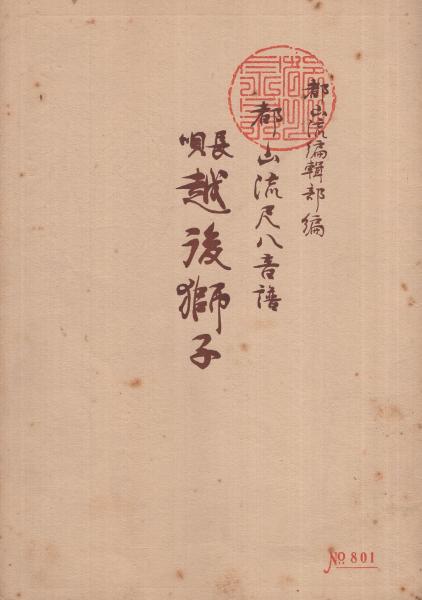 都山流編輯部編
都山流尺八音譜
長唄
越後獅子
No 801